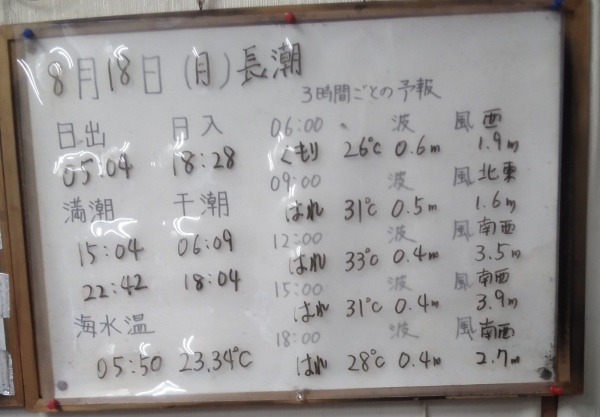 8月18日(月)長潮
3時間ごとの予報
日出 日入
05:04 18:28
満潮 干潮
15:04 06:09
22:42 18:04
海水温
05:50 23.34℃
06:00 波 風 西
くもり 26℃ 0.6m 1.9m
09:00 波 風 北東
はれ 31℃ 0.5m 1.6m
12:00 波 風 南西
はれ 33℃ 0.4m 3.5m
15:00 波 風 南西
はれ 31℃ 0.4m 3.9m
18:00 波 風 南西
はれ 28℃ 0.4m 2.7m